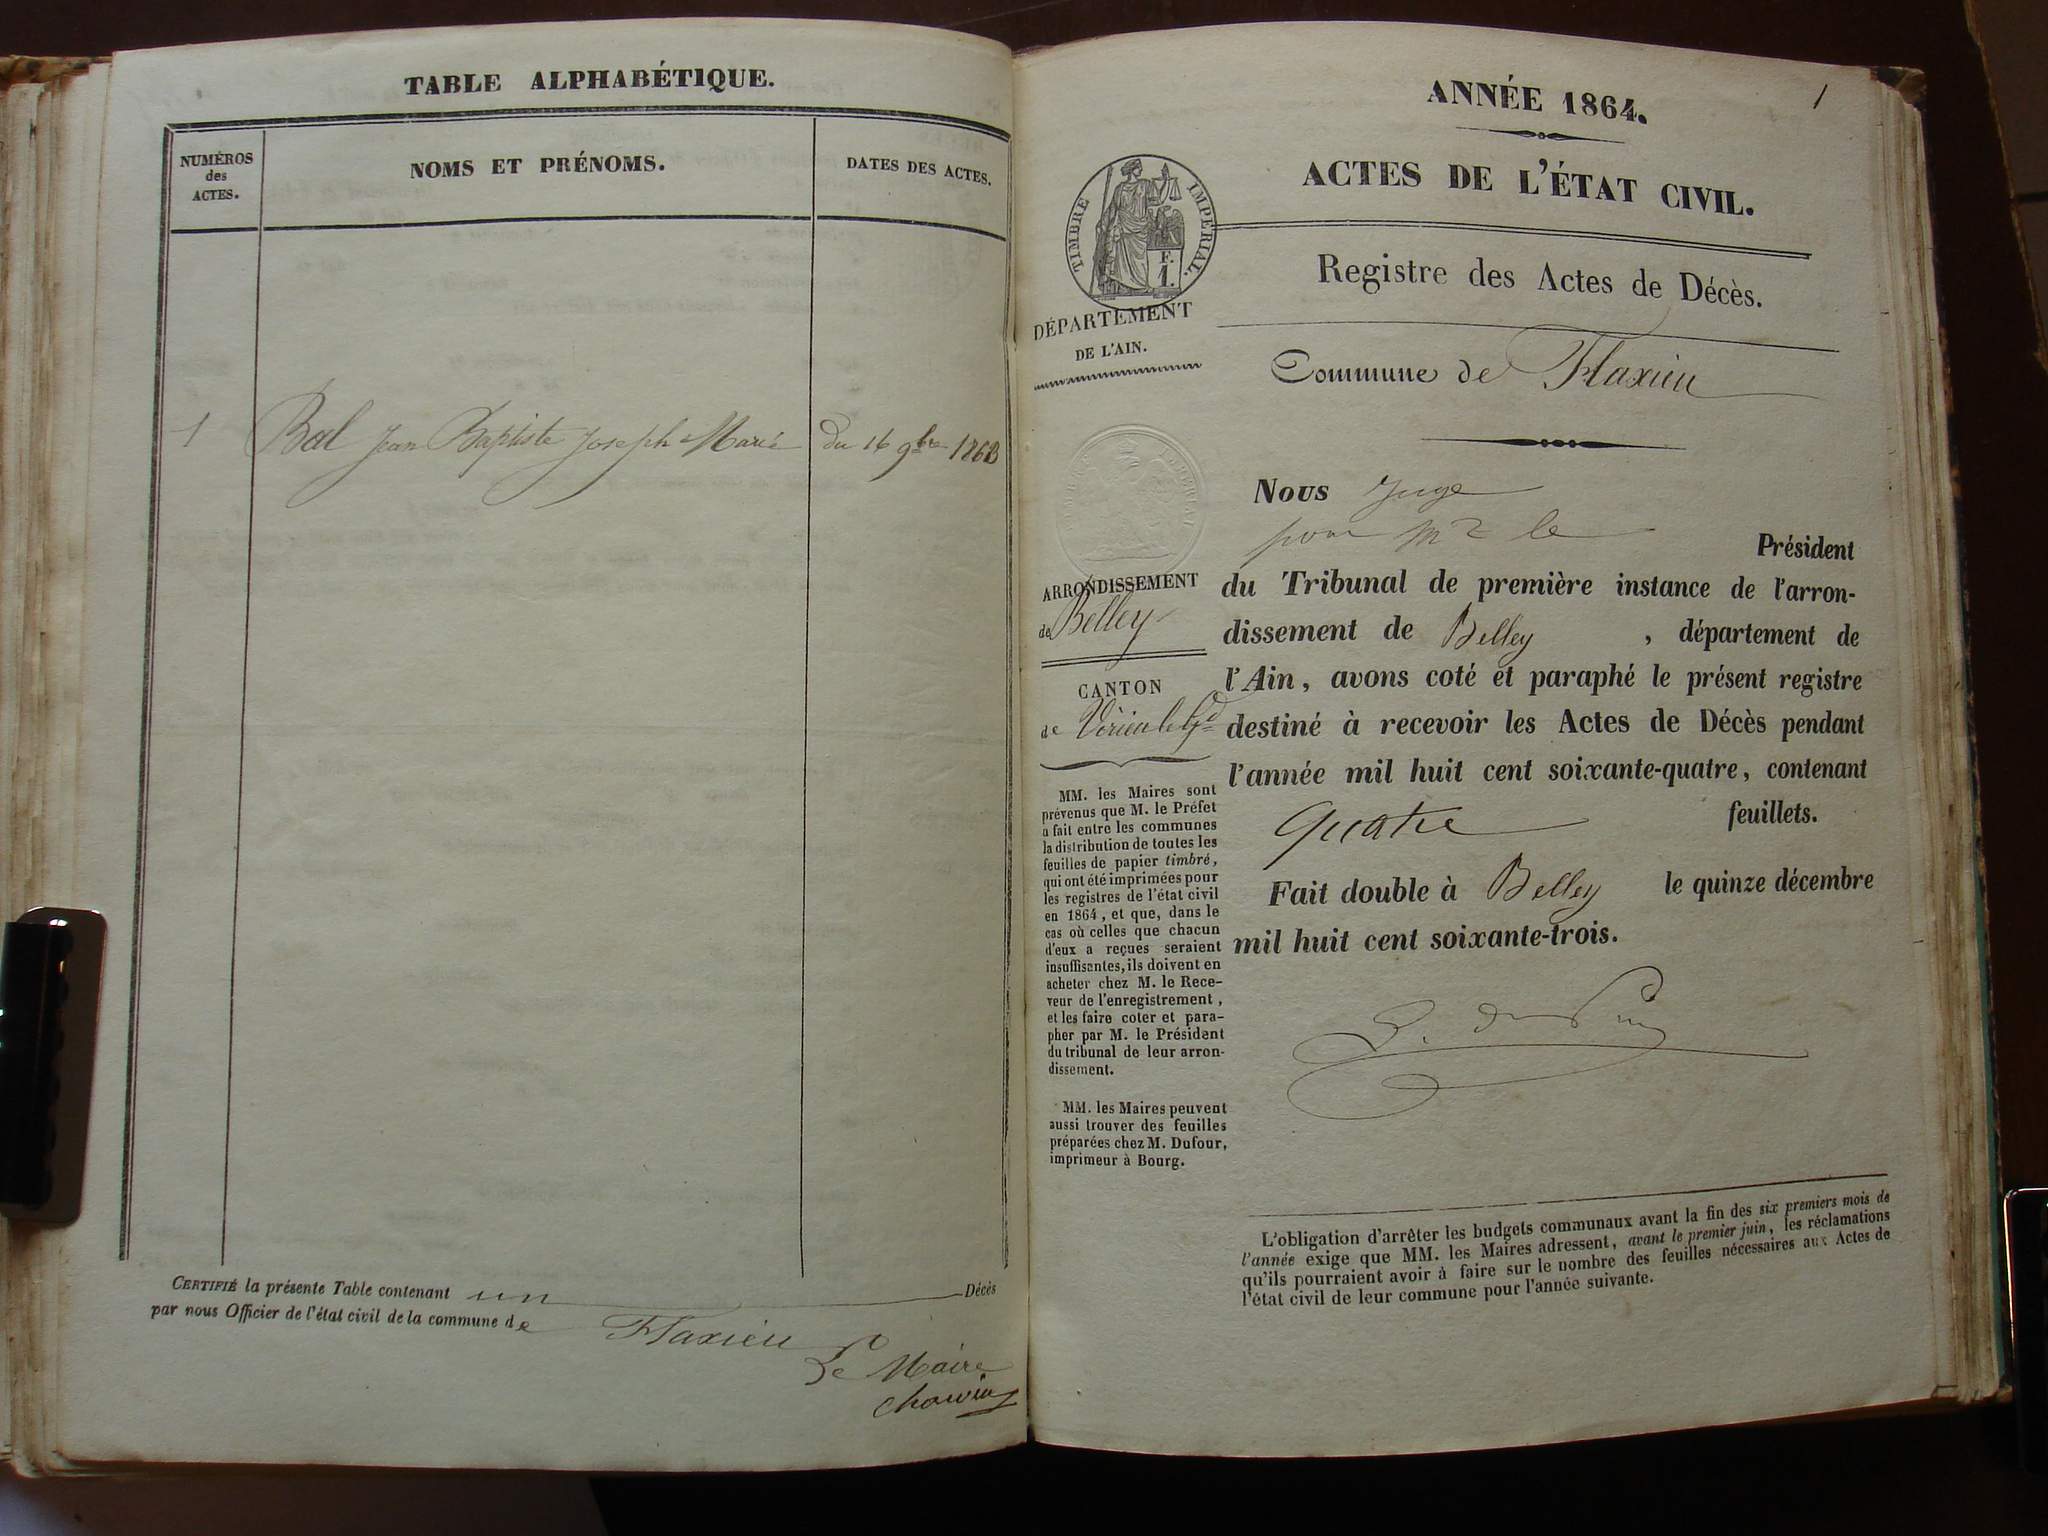 TABLE ALPHABÉTIQUE.
NUMÉROS
des
ACTES.
NOMS ET PRÉNOMS.
DATES DES ACTES.
1 Bal Jean Baptiste Joseph Marie du 16 9bre 1863
CERTIFIÉ la présente Table contenant un Décès
par nous Officier de l'état civil de la commune de Flaxieu
Le Maire
ANNÉE 1864.
1
ACTES DE L'ÉTAT CIVIL.
TIMBRE IMPÉRIAL.
F.
1.
Registre des Actes de Décès.
DÉPARTEMENT
DE L'AIN.
Commune de Flaxieu
ARRONDISSEMENT
de Belley
CANTON
de Virieu le Gd
MM. les Maires sont
prévenus que M. le Préfet
a fait entre les communes
la distribution de toutes les
feuilles de papier timbré,
qui ont été imprimées pour
les registres de l'état civil
en 1864, et que, dans le
cas où celles que chacun
d'eux a reçues seraient
insuffisantes, ils doivent en
acheter chez M. le Rece-
veur de l'enregistrement,
et les faire coter et para-
pher par M. le Président
du tribunal de leur arron-
dissement.
MM. les Maires peuvent
aussi trouver des feuilles
préparées chez M. Dufour,
imprimeur à Bourg.
Nous Juge
pour Mr le Président
du Tribunal de première instance de l'arron-
dissement de Belley, département de
l'Ain, avons coté et paraphé le présent registre
destiné à recevoir les Actes de Décès pendant
l'année mil huit cent soixante-quatre, contenant
quatre feuillets.
Fait double à Belley le quinze décembre
mil huit cent soixante-trois.
L'obligation d'arrêter les budgets communaux avant la fin des six premiers mois de
l'année exige que MM. les Maires adressent, avant le premier juin, les réclamations
qu'ils pourraient avoir à faire sur le nombre des feuilles nécessaires aux Actes de
l'état civil de leur commune pour l'année suivante.